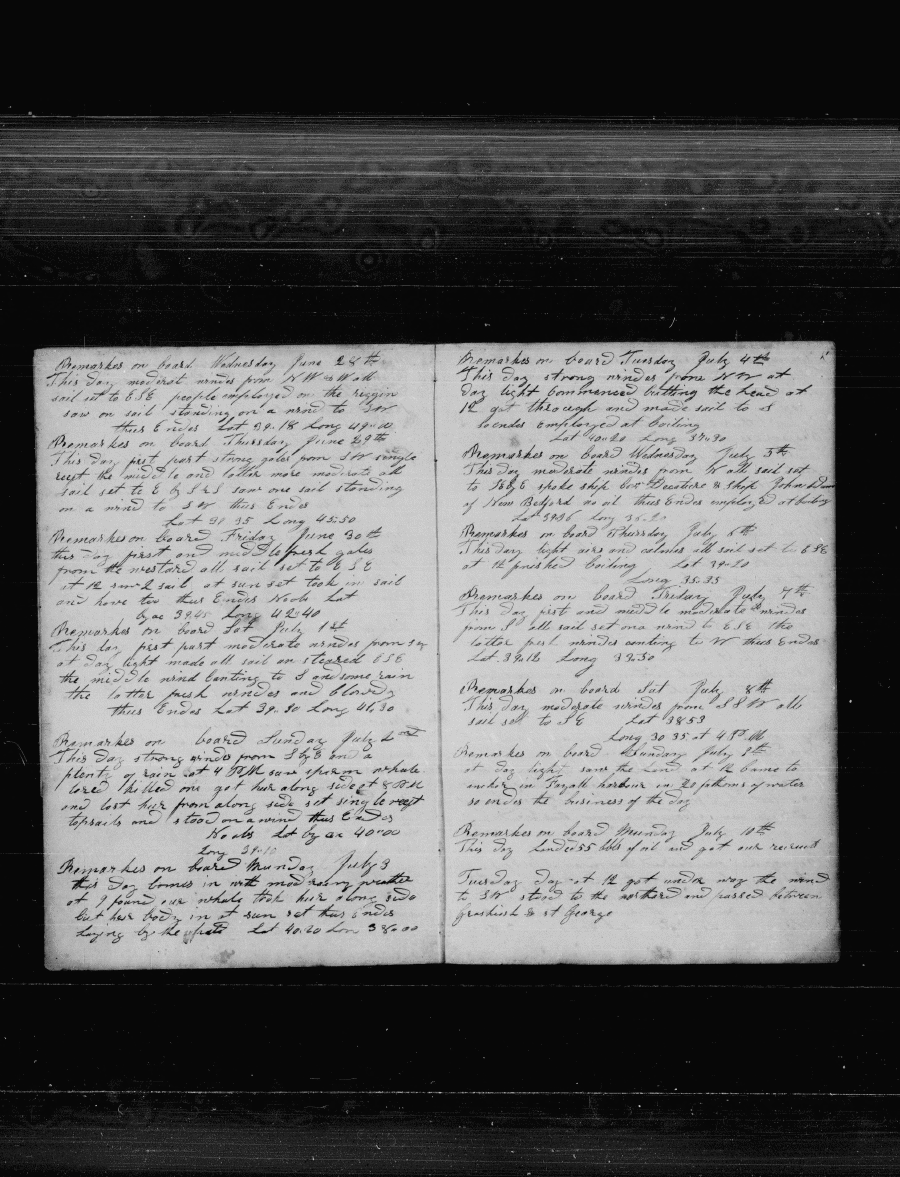 Remarkes on board Wednesday June 28th
This day moderat windes from N W to W all
sail set to E S E people employed on the riggin
saw on sail standing on a wind to SW
thus Endes Lat 39-18 Long 49-00
Remarkes on board Thursday June 29th
This day first part strong gales from S W single
reeft the middle and latter more moderate all
sail set to E by S & S saw one sail standing
on a wind to S W thus Endes
Lat 39 35 Long 45-50
Remarkes on board Friday June 30th
this day first and middle fresh gales
from the westard all sail set to E S E
at 12 saw 2 sail at sun set took in sail
and hove too thus Endes Noobs Lat
by ac 39.45 Long 42-40
Remarkes on board Sat July 1st
This day first part moderate windes from
at day light made all sail an steared ESE
the middle wind canting to S and some rain
the latter fresh windes and Clowdy
thus Endes Lat 39-30 Long 41,30
Remarkes on board Sunday July
This day strong windes from S by E and a
plenty of rain at 4 PM saw sperm whale
lored killed one got her along side at 8 PM
and lost her from along side set single reeft
topsails and stood on a wind thus Endes
Noobs Lat by ac 40-00
Long 39-10
Remarkes on board Munday July 3
this day Comes in with mod weather
at 9 found our whale took her along side
Cut her body in at sun set thus Endes
Laying by the Lat 40:20 Lon 38-00
Remarkes on board Tuesday July 4th
This day strong windes from N W at
day light Commenced Cutting the head at
12 got through and made sail to
so endes Employed at boiling
Lat 40-20 Long 37-30
Remarkes on board Wednesday July 5th
This day moderate windes from W all sail set
to SEbyE spoke ship Com Decature & Ship John Adams
of New Bedford no oil thus Endes employed at boiling
Lat 39-36 Long 36-20
Remarkes on board Thursday July 6th
This day light airs and calmes all sail set to ESE
at 12 finished boiling Lat 39-20
Long 35:35
Remarkes on board Friday July 7th
This day first and middle moderate windes
from S all sail set on a wind to E S E the
latter fresh windes canting to W thus Endes
Lat 39:12 Long 33:30
Remarkes on board Sat July 8th
This day moderate windes from S S W all
sail set to S E Lat 38 53
Long 30 35 at 4 P M
Remarkes on board Sunday July 9th
at day light saw the Land at 12 Came to
anchor in Fayall harbour in 20 fathoms of water
so endes the business of the day
Remarkes on board Munday July 10th
This day Landed 55 bbls of oil and got our recruits
Tuesday day at 12 got under way the wind
to SW stood to the northard and passed between
Grashish & St George